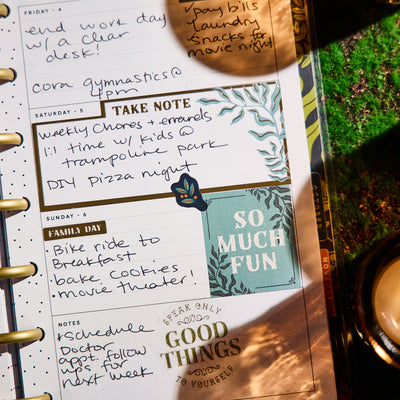 FRIDAY • 4
end work day
w/ a clear
desk!
cora gymnastics @
4pm
pay bills
laundry
Snacks for
movie night
SATURDAY • 5
TAKE NOTE
weekly chores + errands
1:1 time w/ kids @
trampoline park
DIY pizza night
SUNDAY • 6
FAMILY DAY
• Bike ride to
Breakfast
• bake cookies
• movie theater!
SO
MUCH
FUN
NOTES
*schedule
Doctor
appt. follow
ups for
next week
SPEAK ONLY
GOOD
THINGS
TO YOURSELF